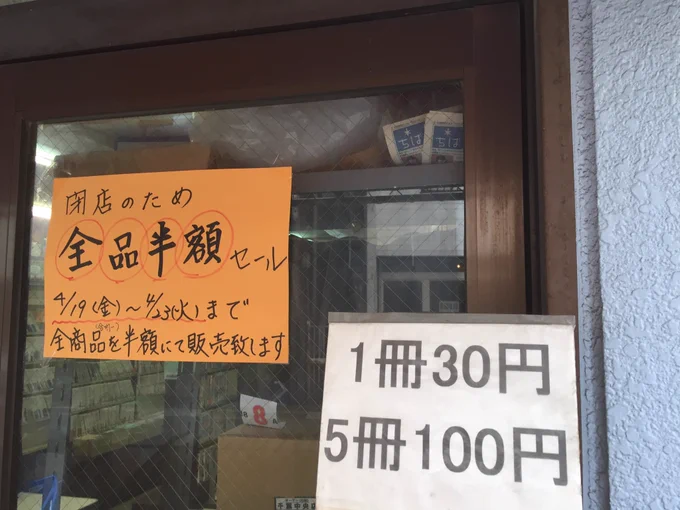 閉店のため
全品半額セール
4/19(金)～4/23(火)まで
全商品を半額にて販売致します
1冊30円
5冊100円
ちは
8
千葉中央